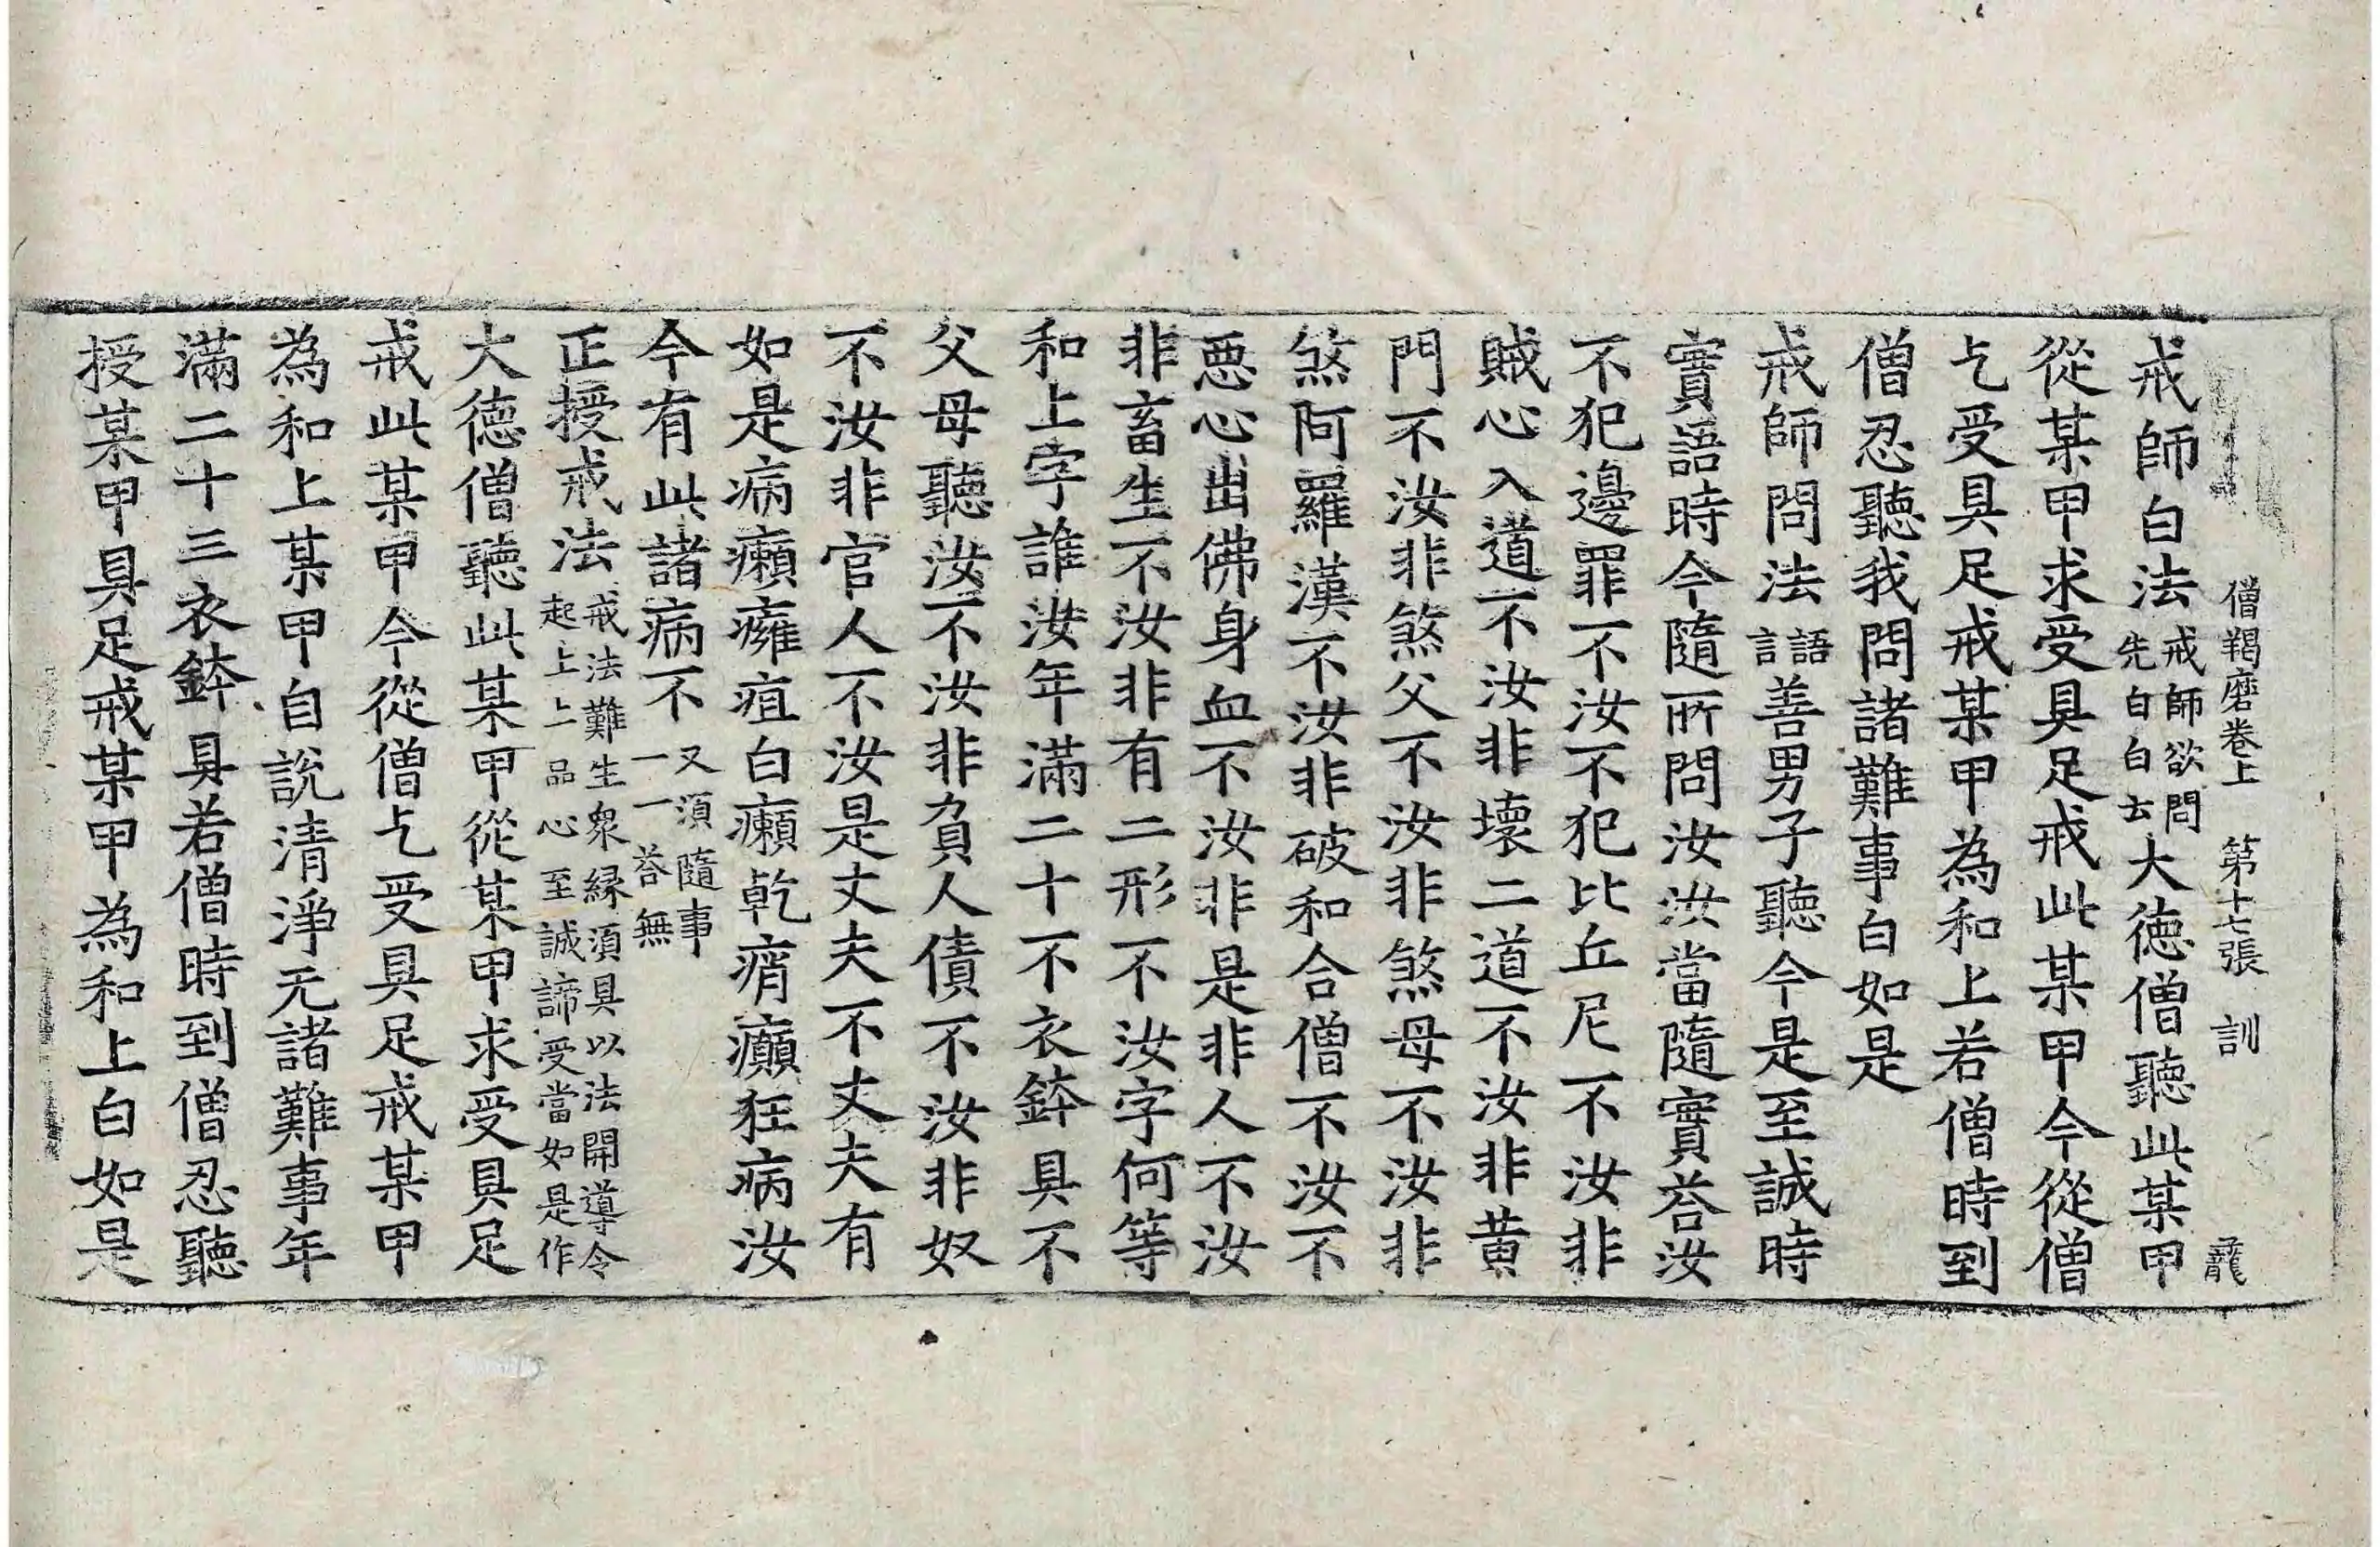 僧羯磨卷上　第十七張　訓　龍
戒師白法戒師欲問先自白云大徳僧聽此某甲
從某甲求受具足戒此某甲今從僧
乞受具足戒某甲為和上若僧時到
僧忍聽我問諸難事白如是
戒師問法語言善男子聽今是至誠時
實語時今隨所問汝汝當隨實荅汝
不犯邊罪不汝不犯比丘尼不汝非
賊心入道不汝非壞二道不汝非黃
門不汝非煞父不汝非煞母不汝非
煞阿羅漢不汝非破和合僧不汝不
惡心出佛身血不汝非是非人不汝
非畜生不汝非有二形不汝字何等
和上字誰汝年滿二十不衣鉢具不
父母聽汝不汝非負人債不汝非奴
不汝非官人不汝是丈夫不丈夫有
如是病癩癰疽白癩乾痟癲狂病汝
今有此諸病不又須隨事一一荅無
正授戒法戒法難生衆縁須具以法開導令起上上品心至誠諦受當如是作
大德僧聽此某甲從某甲求受具足
戒此某甲今從僧乞受具足戒某甲
為和上某甲自說清淨无諸難事年
滿二十三衣鉢具若僧時到僧忍聽
授某甲具足戒某甲為和上白如是